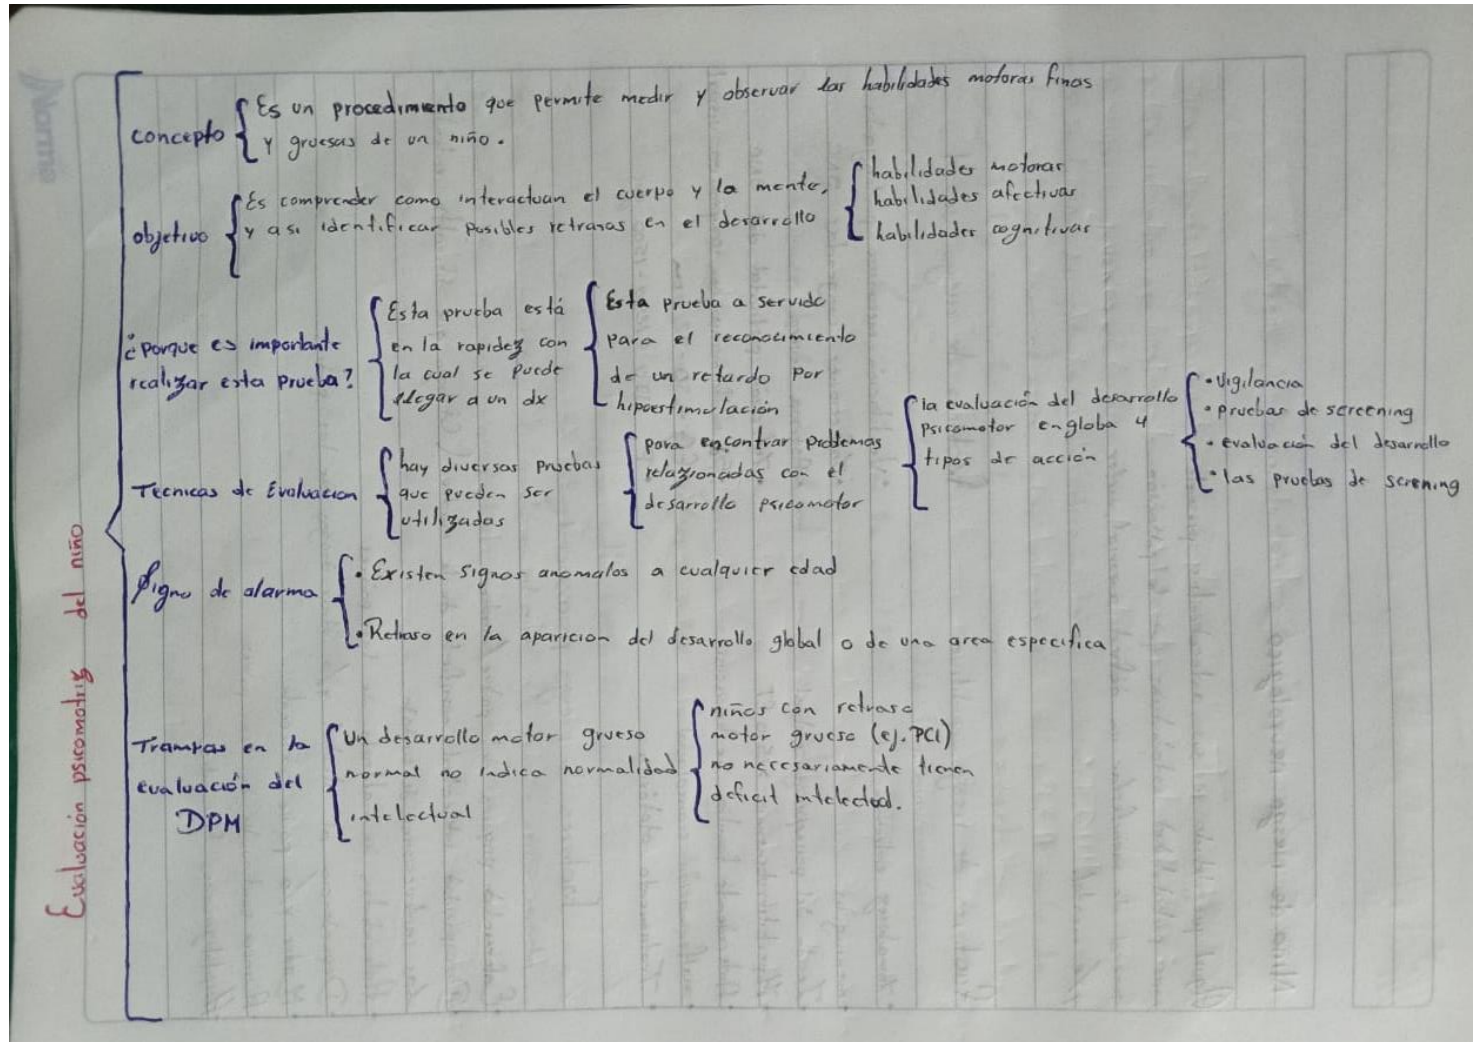 Norma
Evaluación psicomotriz del niño
concepto
Es un procedimiento que permite medir y observar las habilidades motoras finas
y gruesas de un niño.
objetivo
Es comprender como interactuan el cuerpo y la mente,
y asi identificar posibles retrasas en el desarrollo
habilidades motoras
habilidades afectivas
habilidades cognitivas
¿Porque es importante
realizar esta prueba?
Esta prueba está
en la rapidez con
la cual se puede
llegar a un dx
Esta prueba a servido
para el reconocimiento
de un retardo por
hipoestimulación
Tecnicas de Evaluacion
hay diversas pruebas
que pueden ser
utilizadas
para encontrar problemas
relazionadas con el
desarrollo psicomotor
la evaluación del desarrollo
psicomotor engloba 4
tipos de acción
• Vigilancia
• pruebas de screening
• evaluación del desarrollo
• las pruebas de screning
Signo de alarma
• Existen signos anomalos a cualquier edad
• Retraso en la aparicion del desarrollo global o de una area especifica
Trampas en la
evaluación del
DPM
Un desarrollo motor grueso
normal no indica normalidad
intelectual
niños con retraso
motor grueso (ej. PCI)
no necesariamente tienen
deficit